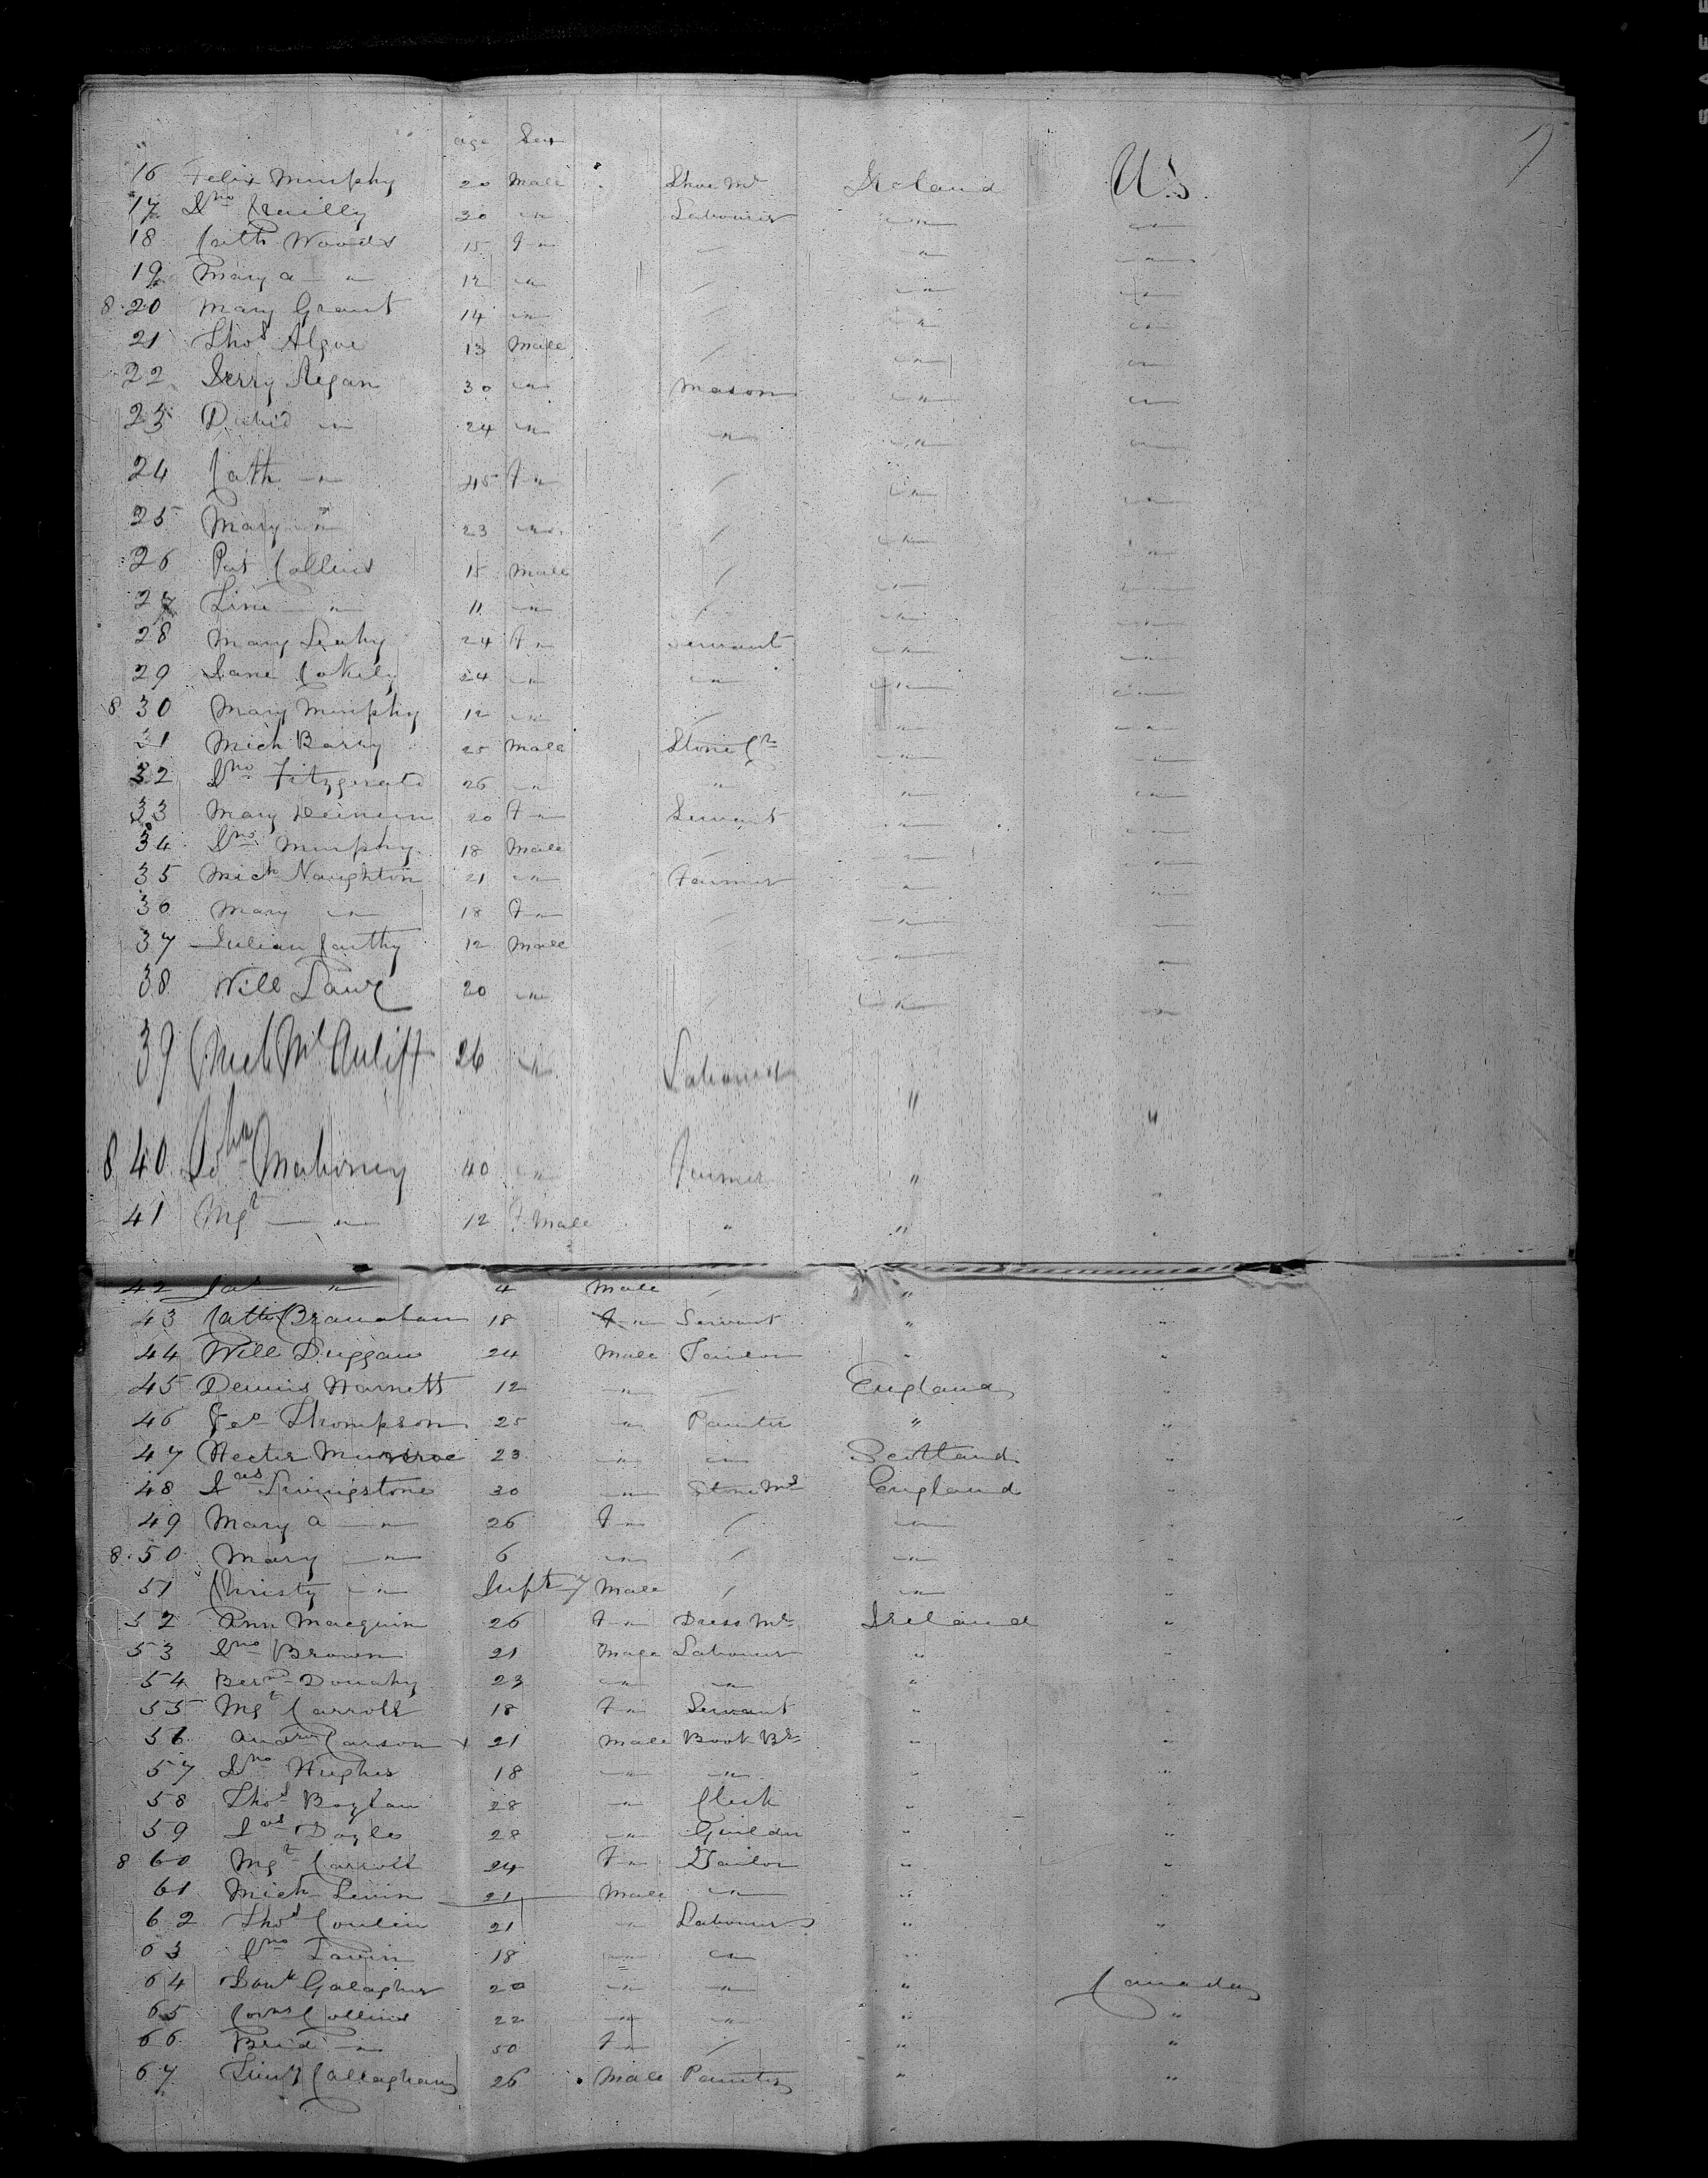 age Sex
16 Felix Murphy 20 Male Shoe Mr Ireland U.S. 7
17 Jno Reilly 20 " Labourer " "
18 Cath Woods 15 F " / " "
19 Mary A " 12 " / " "
8.20 Mary Grant 14 " / " "
21 Thos Algoe 13 Male / " "
22 Jerry Regan 30 " Mason " "
23 David " 24 " " " "
24 Cath " 45 F " / " "
25 Mary " 23 " / " "
26 Pat Collins 15 Male / " "
27 Tim " 11 " / " "
28 Mary Leahy 24 F " Servant " "
29 Jane Cokely 24 " " " "
8 30 Mary Murphy 12 " / " "
31 Mich Barry 25 Male Stone Cr " "
32 Jno Fitzgerald 26 " " " "
33 Mary 20 F " Servant " "
34 Jno Murphy 18 Male / " "
35 Mich Naughton 21 " Farmer " "
36 Mary " 18 F " / " "
37 Julian Carthy 12 Male " "
38 Will 20 " / " "
39 Mich McAuliff 26 " Labourer " "
8 40 John Mahoney 40 " Farmer " "
41 Mgt " 12 F. Male " " "
42 Jas " 4 Male / " "
43 Cath Branahan 18 F " Servant " "
44 Will Duggan 24 Male Tailor " "
45 Dennis Harnett 12 " / England "
46 Geo Thompson 25 " Painter " "
47 Hector Munroe 23 " " Scotland "
48 Jas Livingstone 30 " Stone Ms England "
49 Mary A " 26 F " / " "
8.50 Mary " 6 " / " "
51 Christy " Inft Male / " "
52 Ann Macquin 26 F " Dress Mr Ireland "
53 Jno Brown 21 Male Labourer " "
54 Bernd Donahy 23 " " " "
55 Mgt Carroll 18 F " Servant " "
56 Andrw Carson 21 Male Book Br " "
57 Jno Hughes 18 " " " "
58 Thos Boylan 28 " Clerk " "
59 Jas Doyle 28 " Guilder " "
8 60 Mgt Carroll 24 F " Tailor " "
61 Mich 21 Male " " "
62 Thos Conlin 21 " Labourer " "
63 Jno 18 " " " "
64 Danl Galagher 20 " " " Canada
65 Corns Collins 22 " " " "
66 Brid " 50 F " / " "
67 Timy Callaghan 26 Male Painter " "